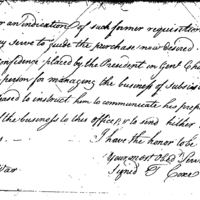 r an indication of such former requisition
y serve to guide the purchase now desired.
onfidence placed by the President in Genl Cha
person for managing the business of subsis
ased to instruct him to communicate his prop
f the business to this office, & to send hither
I have the honor to be
Your most Obed Serv
War
Signed T Coxe